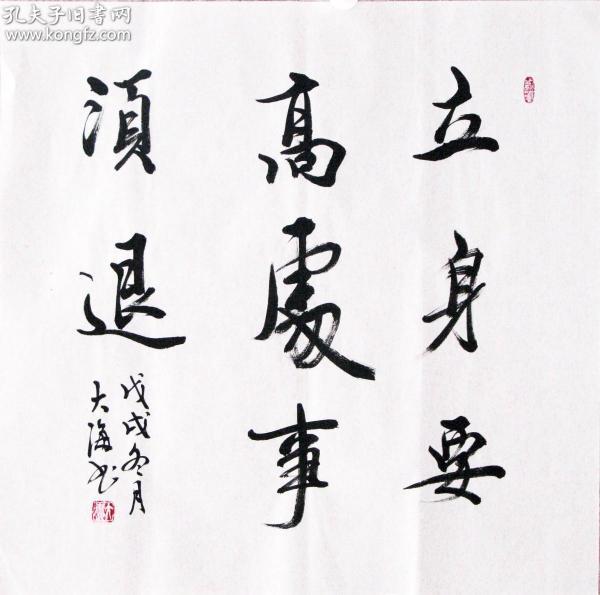 孔夫子旧书网
www.kongfz.com
立身要
高處事
湏退
戊戌冬月
大海书